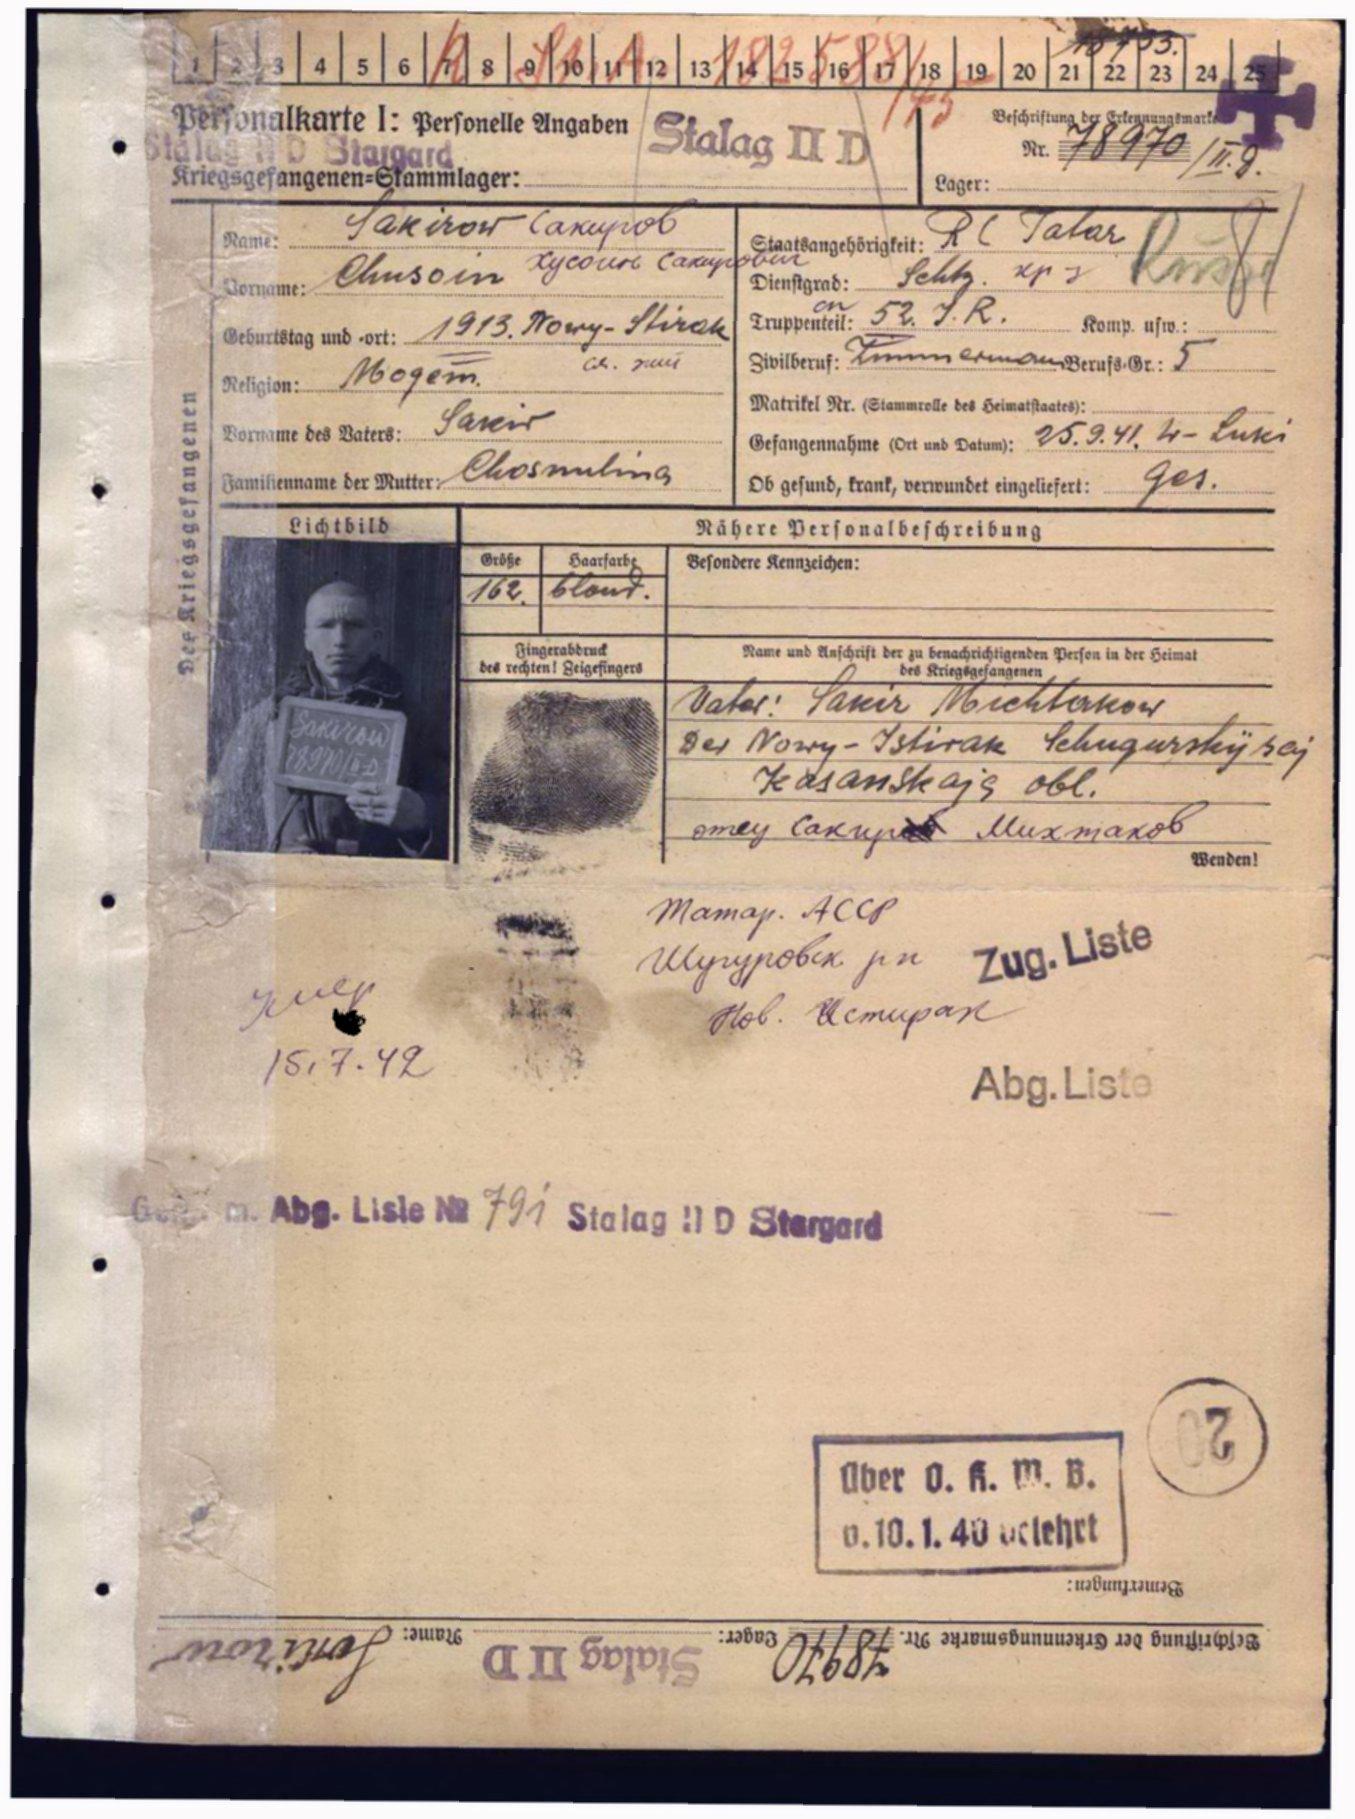 1 2 3 4 5 6 7 8 9 10 11 12 13 14 15 16 17 18 19 20 21 22 23 24 25
Personalkarte I: Personelle Angaben
Stalag II D
Beschriftung der Erkennungsmarke
Nr. 78970/II.D.
Stalag II D Stargard
Kriegsgefangenen-Stammlager:
Lager:
Des Kriegsgefangenen
Name: Sakirow Сакиров
Vorname: Chusoin Хусоин Сакирович
Geburtstag und -ort: 1913. Nowy-Stirak
Religion: Mogem.
Vorname des Vaters: Sakir
Familienname der Mutter: Chosnulina
Staatsangehörigkeit: Tatar
Dienstgrad: Schtz. кр
Truppenteil: 52. J.R. Komp. usw.:
Zivilberuf: Zimmermann Berufs-Gr.: 5
Matrikel Nr. (Stammrolle des Heimatstaates):
Gefangennahme (Ort und Datum): 25.9.41. W-Luki
Ob gesund, krank, verwundet eingeliefert: ges.
Lichtbild
Nähere Personalbeschreibung
Größe
162.
Haarfarbe
blond.
Besondere Kennzeichen:
Sakirow
78970/II D
Fingerabdruck
des rechten! Zeigefingers
Name und Anschrift der zu benachrichtigenden Person in der Heimat
des Kriegsgefangenen
Vater: Sakir Michtakow
Der Nowy-Istirak Schugurskij raj
Kasanskaja obl.
отец Сакир Михтаков
Wenden!
Татар. АССР
Шугуровск рн
Нов. Истирак
умер
15.7.42
Zug. Liste
Abg. Liste
m. Abg. Liste № 791 Stalag II D Stargard
20
Über O. K. W. B.
v. 10. 1. 40 belehrt
Bemerkungen:
Beschriftung der Erkennungsmarke Nr. 78970 Lager: Stalag II D Name: Sakirow